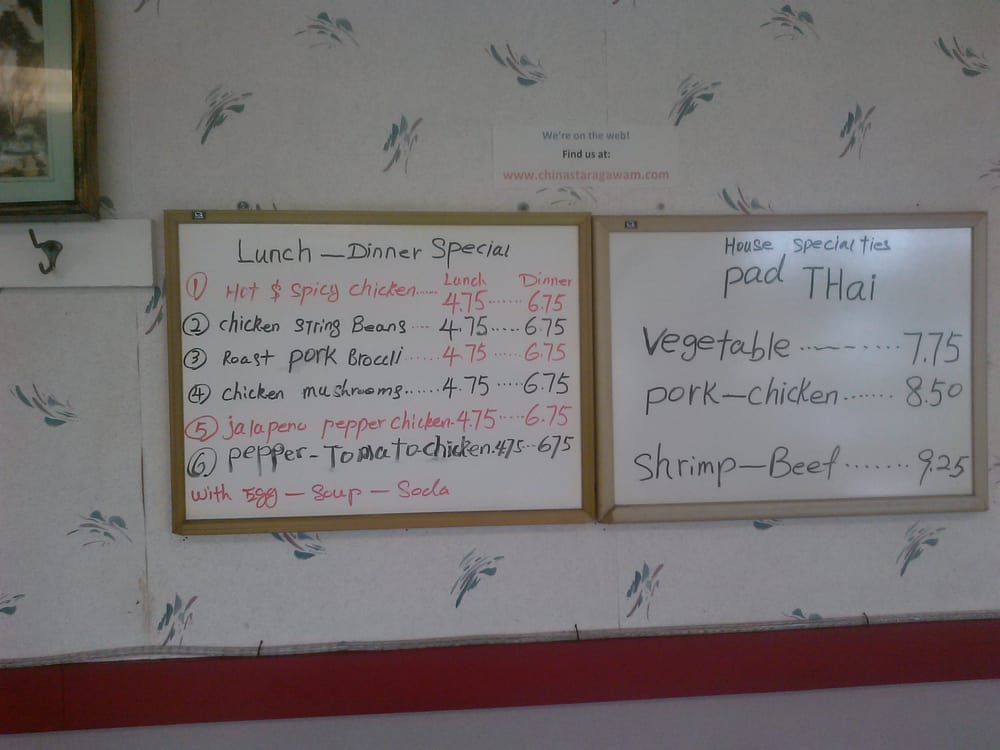 We're on the web!
Find us at:
www.chinastaragawam.com
Lunch – Dinner Special
Lunch Dinner
① Hot & Spicy chicken...... 4.75...... 6.75
② chicken STring Beans.... 4.75..... 6.75
③ Roast pork Broccli...... 4.75...... 6.75
④ chicken mushrooms...... 4.75..... 6.75
⑤ jalapeno pepper chicken. 4.75..... 6.75
⑥ pepper-Tomato chicken. 475... 675
with Egg – Soup – Soda
House specialties
pad THai
Vegetable ........ 7.75
pork–chicken....... 8.50
Shrimp–Beef ....... 9.25